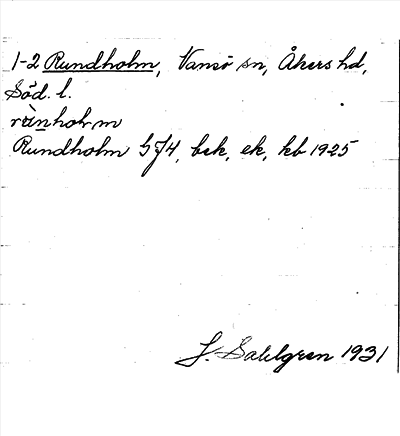 1-2 Rundholm, Vansö sn, Åkers hd,
Söd. l.
Rundholm 5J4, bsk, ek, kb 1925
J. Sahlgren 1931